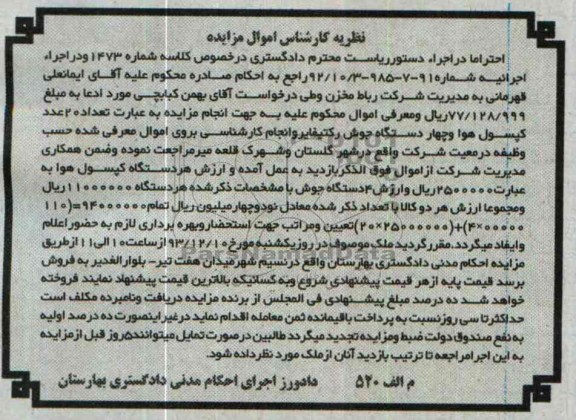 نظریه کارشناس اموال مزایده
احتراما در اجراء دستور ریاست محترم دادگستری درخصوص کلاسه شماره ۱۴۷۳ و در اجراء
اجرائیه شماره ۹۱-۷-۹۸۵-۹۲/۱۰/۳ راجع به احکام صادره محکوم علیه آقای ایمانعلی
قهرمانی به مدیریت شرکت رباط مخزن وطی درخواست آقای بهمن کبابچی مورد ادعا به مبلغ
۷۷/۱۲۸/۹۹۹ ریال ومعرفی اموال محکوم علیه به جهت انجام مزایده به عبارت تعداد ۲۰ عدد
کپسول هوا وچهار دستگاه جوش رکتیفایر وانجام کارشناسی بروی اموال معرفی شده حسب
وظیفه درمعیت شرکت واقع درشهر گلستان وشهرک قلعه میر مراجعت نموده وضمن همکاری
مدیریت شرکت از اموال فوق الذکر بازدید به عمل آمده و ارزش هر دستگاه کپسول هوا به
عبارت ۲۵۰۰۰۰۰ ریال وارزش ۴ دستگاه جوش با مشخصات ذکر شده هر دستگاه ۱۱۰۰۰۰۰۰ ریال
ومجموعا ارزش هر دو کالا با تعداد ذکر شده معادل نود وچهار میلیون ریال تمام ۹۴۰۰۰۰۰۰=(۱۱۰
۰۰۰۰۰×۴)+(۲۵۰۰۰۰۰×۲۰) تعیین ومراتب جهت استحضار وبهره برداری لازم به حضور اعلام
وایفاد میگردد. مقرر گردید ملک موصوف در روز یکشنبه مورخ ۹۳/۱۲/۱۰ از ساعت ۱۰ الی ۱۱ از طریق
مزایده احکام مدنی دادگستری بهارستان واقع درنسیم شهر میدان هفت تیر- بلوار الغدیر به فروش
برسد قیمت پایه از هر قیمت پیشنهادی شروع وبه کسانیکه بالاترین قیمت پیشنهاد نمایند فروخته
خواهد شد ده درصد مبلغ پیشنهادی فی المجلس از برنده مزایده دریافت ونامبرده مکلف است
حداکثر تا سی روز نسبت به پرداخت باقیمانده ثمن معامله اقدام نماید در غیر اینصورت ده درصد اولیه
به نفع صندوق دولت ضبط ومزایده تجدید میگردد طالبین درصورت تمایل میتوانند ۵ روز قبل از مزایده
به این اجرا مراجعه تا ترتیب بازدید آنان از ملک مورد نظر داده شود.
م الف ۵۲۰ دادورز اجرای احکام مدنی دادگستری بهارستان